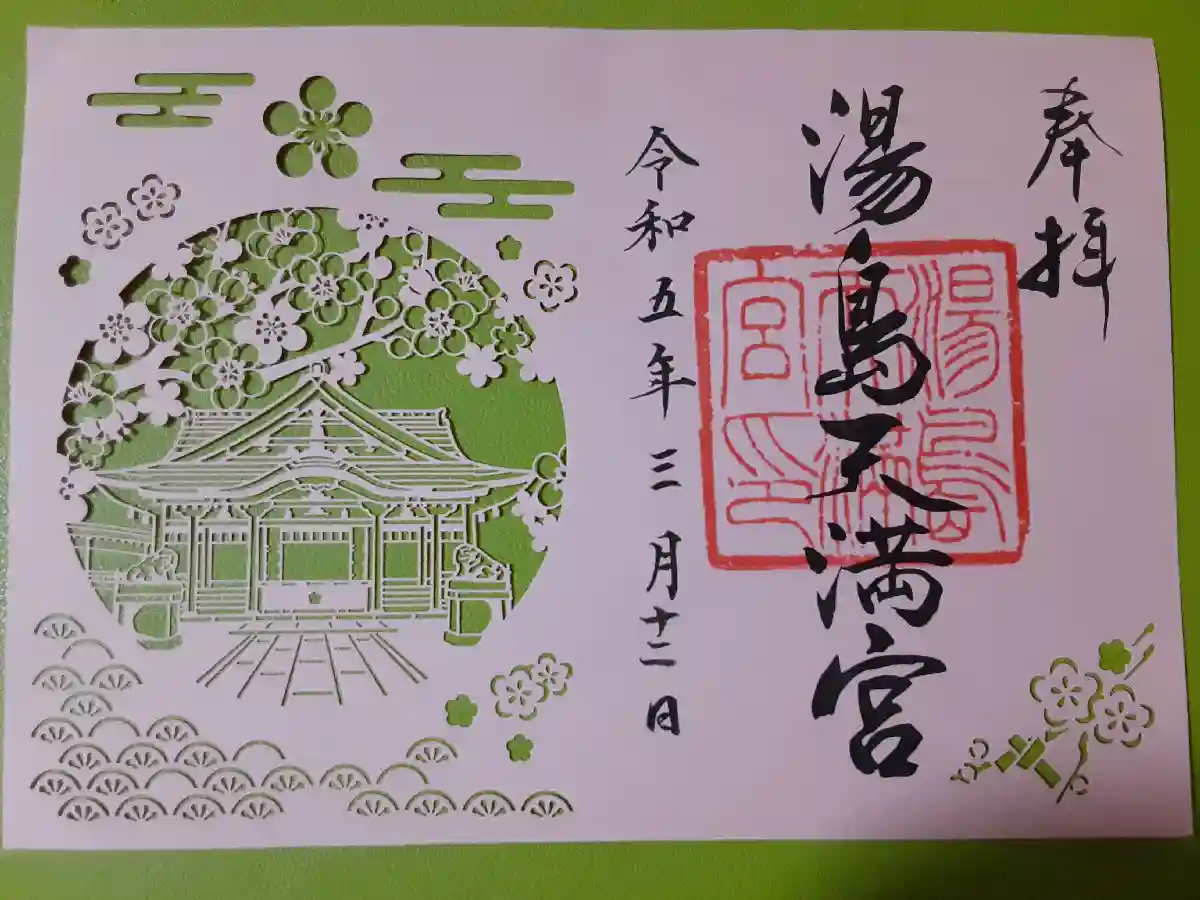 奉拝
湯島天満宮
湯島天満宮印
令和五年三月十二日